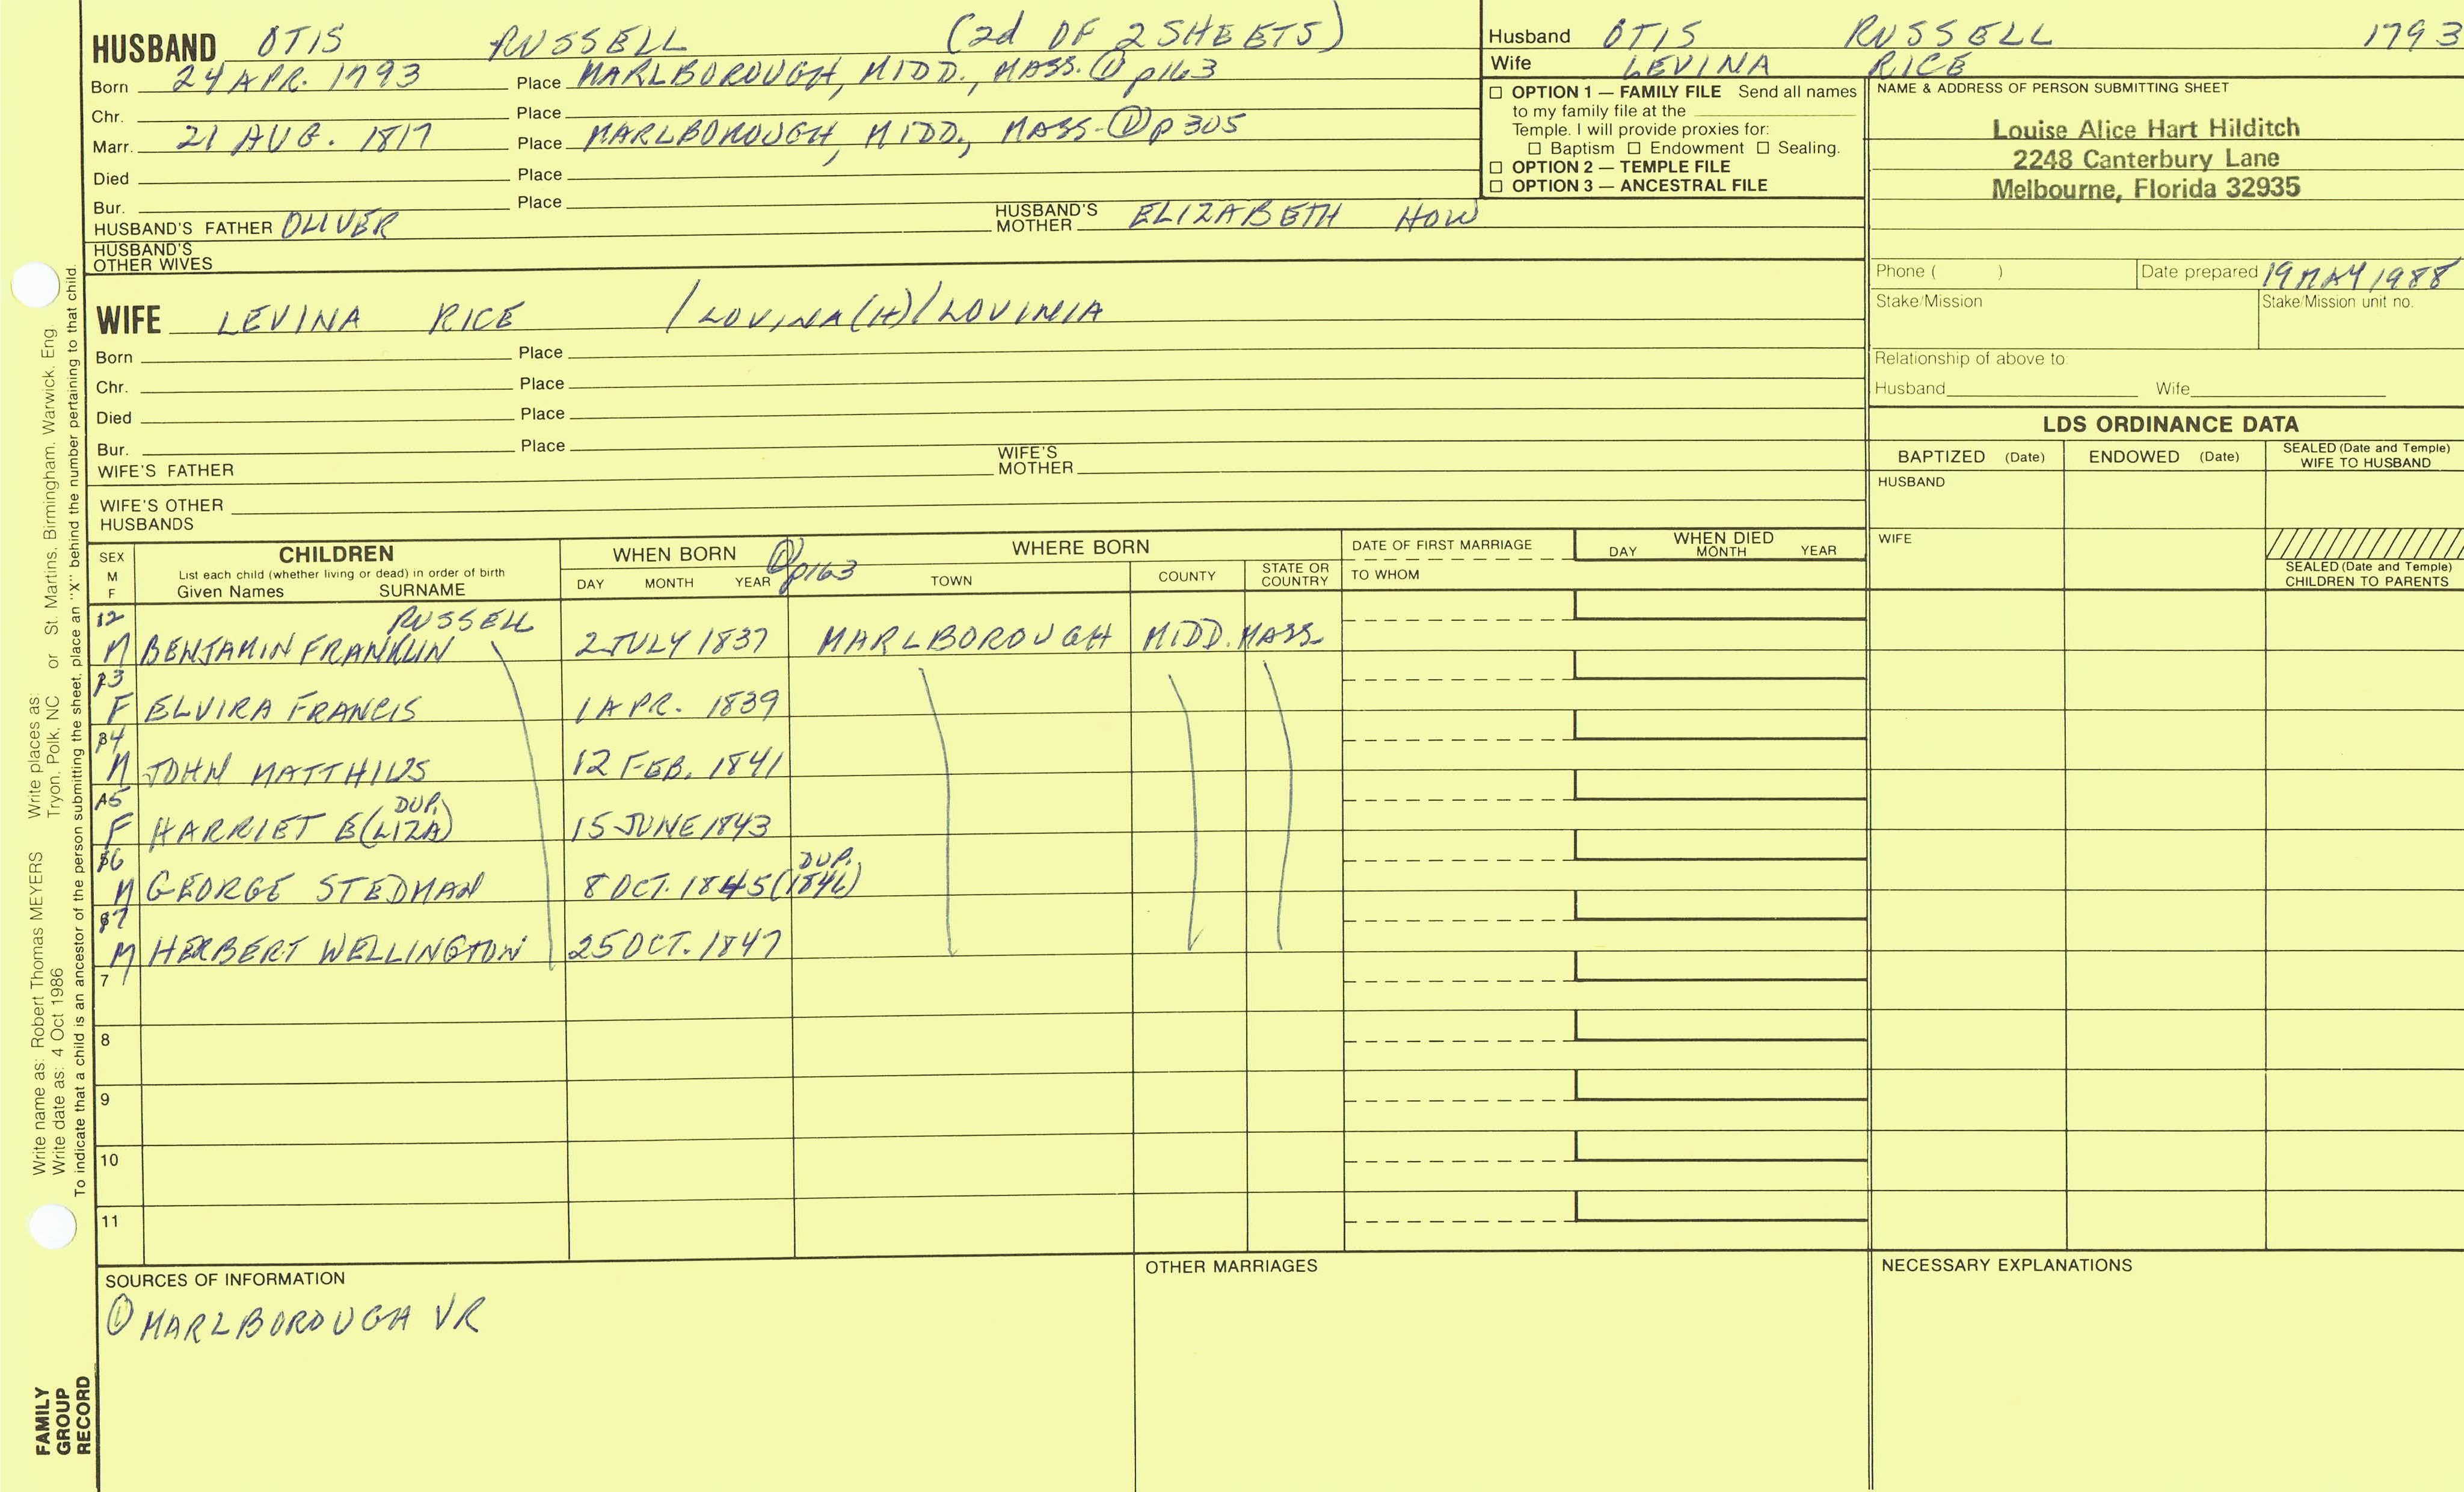 HUSBAND OTIS RUSSELL (2d OF 2 SHEETS)
Born 24 APR. 1793 Place MARLBOROUGH, MIDD., MASS. ① p163
Chr. Place
Marr. 21 AUG. 1817 Place MARLBOROUGH, MIDD., MASS. ① p305
Died Place
Bur. Place
HUSBAND'S FATHER OLIVER HUSBAND'S MOTHER ELIZABETH HOW
HUSBAND'S OTHER WIVES
Husband OTIS RUSSELL 1793
Wife LEVINA RICE
☐ OPTION 1 — FAMILY FILE Send all names
to my family file at the
Temple. I will provide proxies for:
☐ Baptism ☐ Endowment ☐ Sealing.
☐ OPTION 2 — TEMPLE FILE
☐ OPTION 3 — ANCESTRAL FILE
NAME & ADDRESS OF PERSON SUBMITTING SHEET
Louise Alice Hart Hilditch
2248 Canterbury Lane
Melbourne, Florida 32935
Phone ( ) Date prepared 19 MAY 1988
Stake/Mission Stake/Mission unit no.
Relationship of above to:
Husband Wife
WIFE LEVINA RICE / LOVINA(H)/LOVINIA
Born Place
Chr. Place
Died Place
Bur. Place
WIFE'S FATHER WIFE'S MOTHER
WIFE'S OTHER HUSBANDS
LDS ORDINANCE DATA
BAPTIZED (Date) ENDOWED (Date) SEALED (Date and Temple) WIFE TO HUSBAND
HUSBAND
WIFE
SEALED (Date and Temple) CHILDREN TO PARENTS
SEX M F
CHILDREN
List each child (whether living or dead) in order of birth
Given Names SURNAME
WHEN BORN ① p163
DAY MONTH YEAR
WHERE BORN
TOWN COUNTY STATE OR COUNTRY
DATE OF FIRST MARRIAGE
TO WHOM
WHEN DIED
DAY MONTH YEAR
12 RUSSELL
M BENJAMIN FRANKLIN 2 JULY 1837 MARLBOROUGH MIDD. MASS.
13
F ELVIRA FRANCIS 1 APR. 1839
14
M JOHN MATTHIUS 12 FEB. 1841
15 DUP.
F HARRIET E(LIZA) 15 JUNE 1843
16 DUP.
M GEORGE STEDMAN 8 OCT. 1845 (1846)
17
M HERBERT WELLINGTON 25 OCT. 1847
7
8
9
10
11
SOURCES OF INFORMATION
① MARLBOROUGH VR
OTHER MARRIAGES
NECESSARY EXPLANATIONS
Write name as: Robert Thomas MEYERS Write places as:
Write date as: 4 Oct 1986 Tryon, Polk, NC or St. Martins, Birmingham, Warwick, Eng
To indicate that a child is an ancestor of the person submitting the sheet, place an "X" behind the number pertaining to that child.
FAMILY
GROUP
RECORD